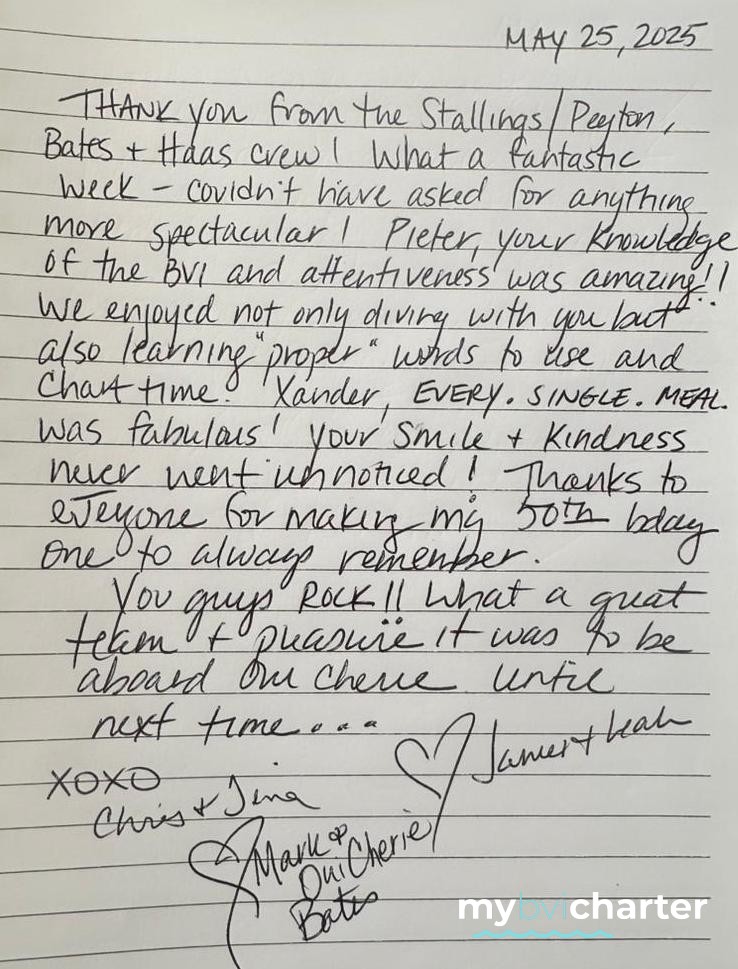 MAY 25, 2025
THANK you from the Stallings/Peyton,
Bates + Haas crew! What a fantastic
week - couldn't have asked for anything
more spectacular! Pieter, your knowledge
of the BVI and attentiveness was amazing!!
We enjoyed not only diving with you but
also learning "proper" words to use and
Chart time! Xander, EVERY. SINGLE. MEAL.
was fabulous! Your smile + kindness
never went unnoticed! Thanks to
everyone for making my 50th bday
one to always remember.
You guys ROCK!! What a great
team + pleasure it was to be
aboard Oui Cherie until
next time...
James + Leah
XOXO
Chris + Jina
Mark &
Oui Cherie
Bates
mybvicharter